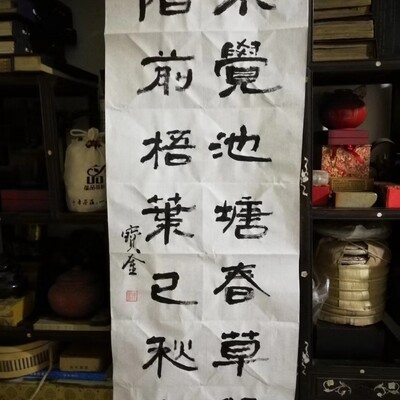 未覺池塘春草
階前梧葉已秋
寶金